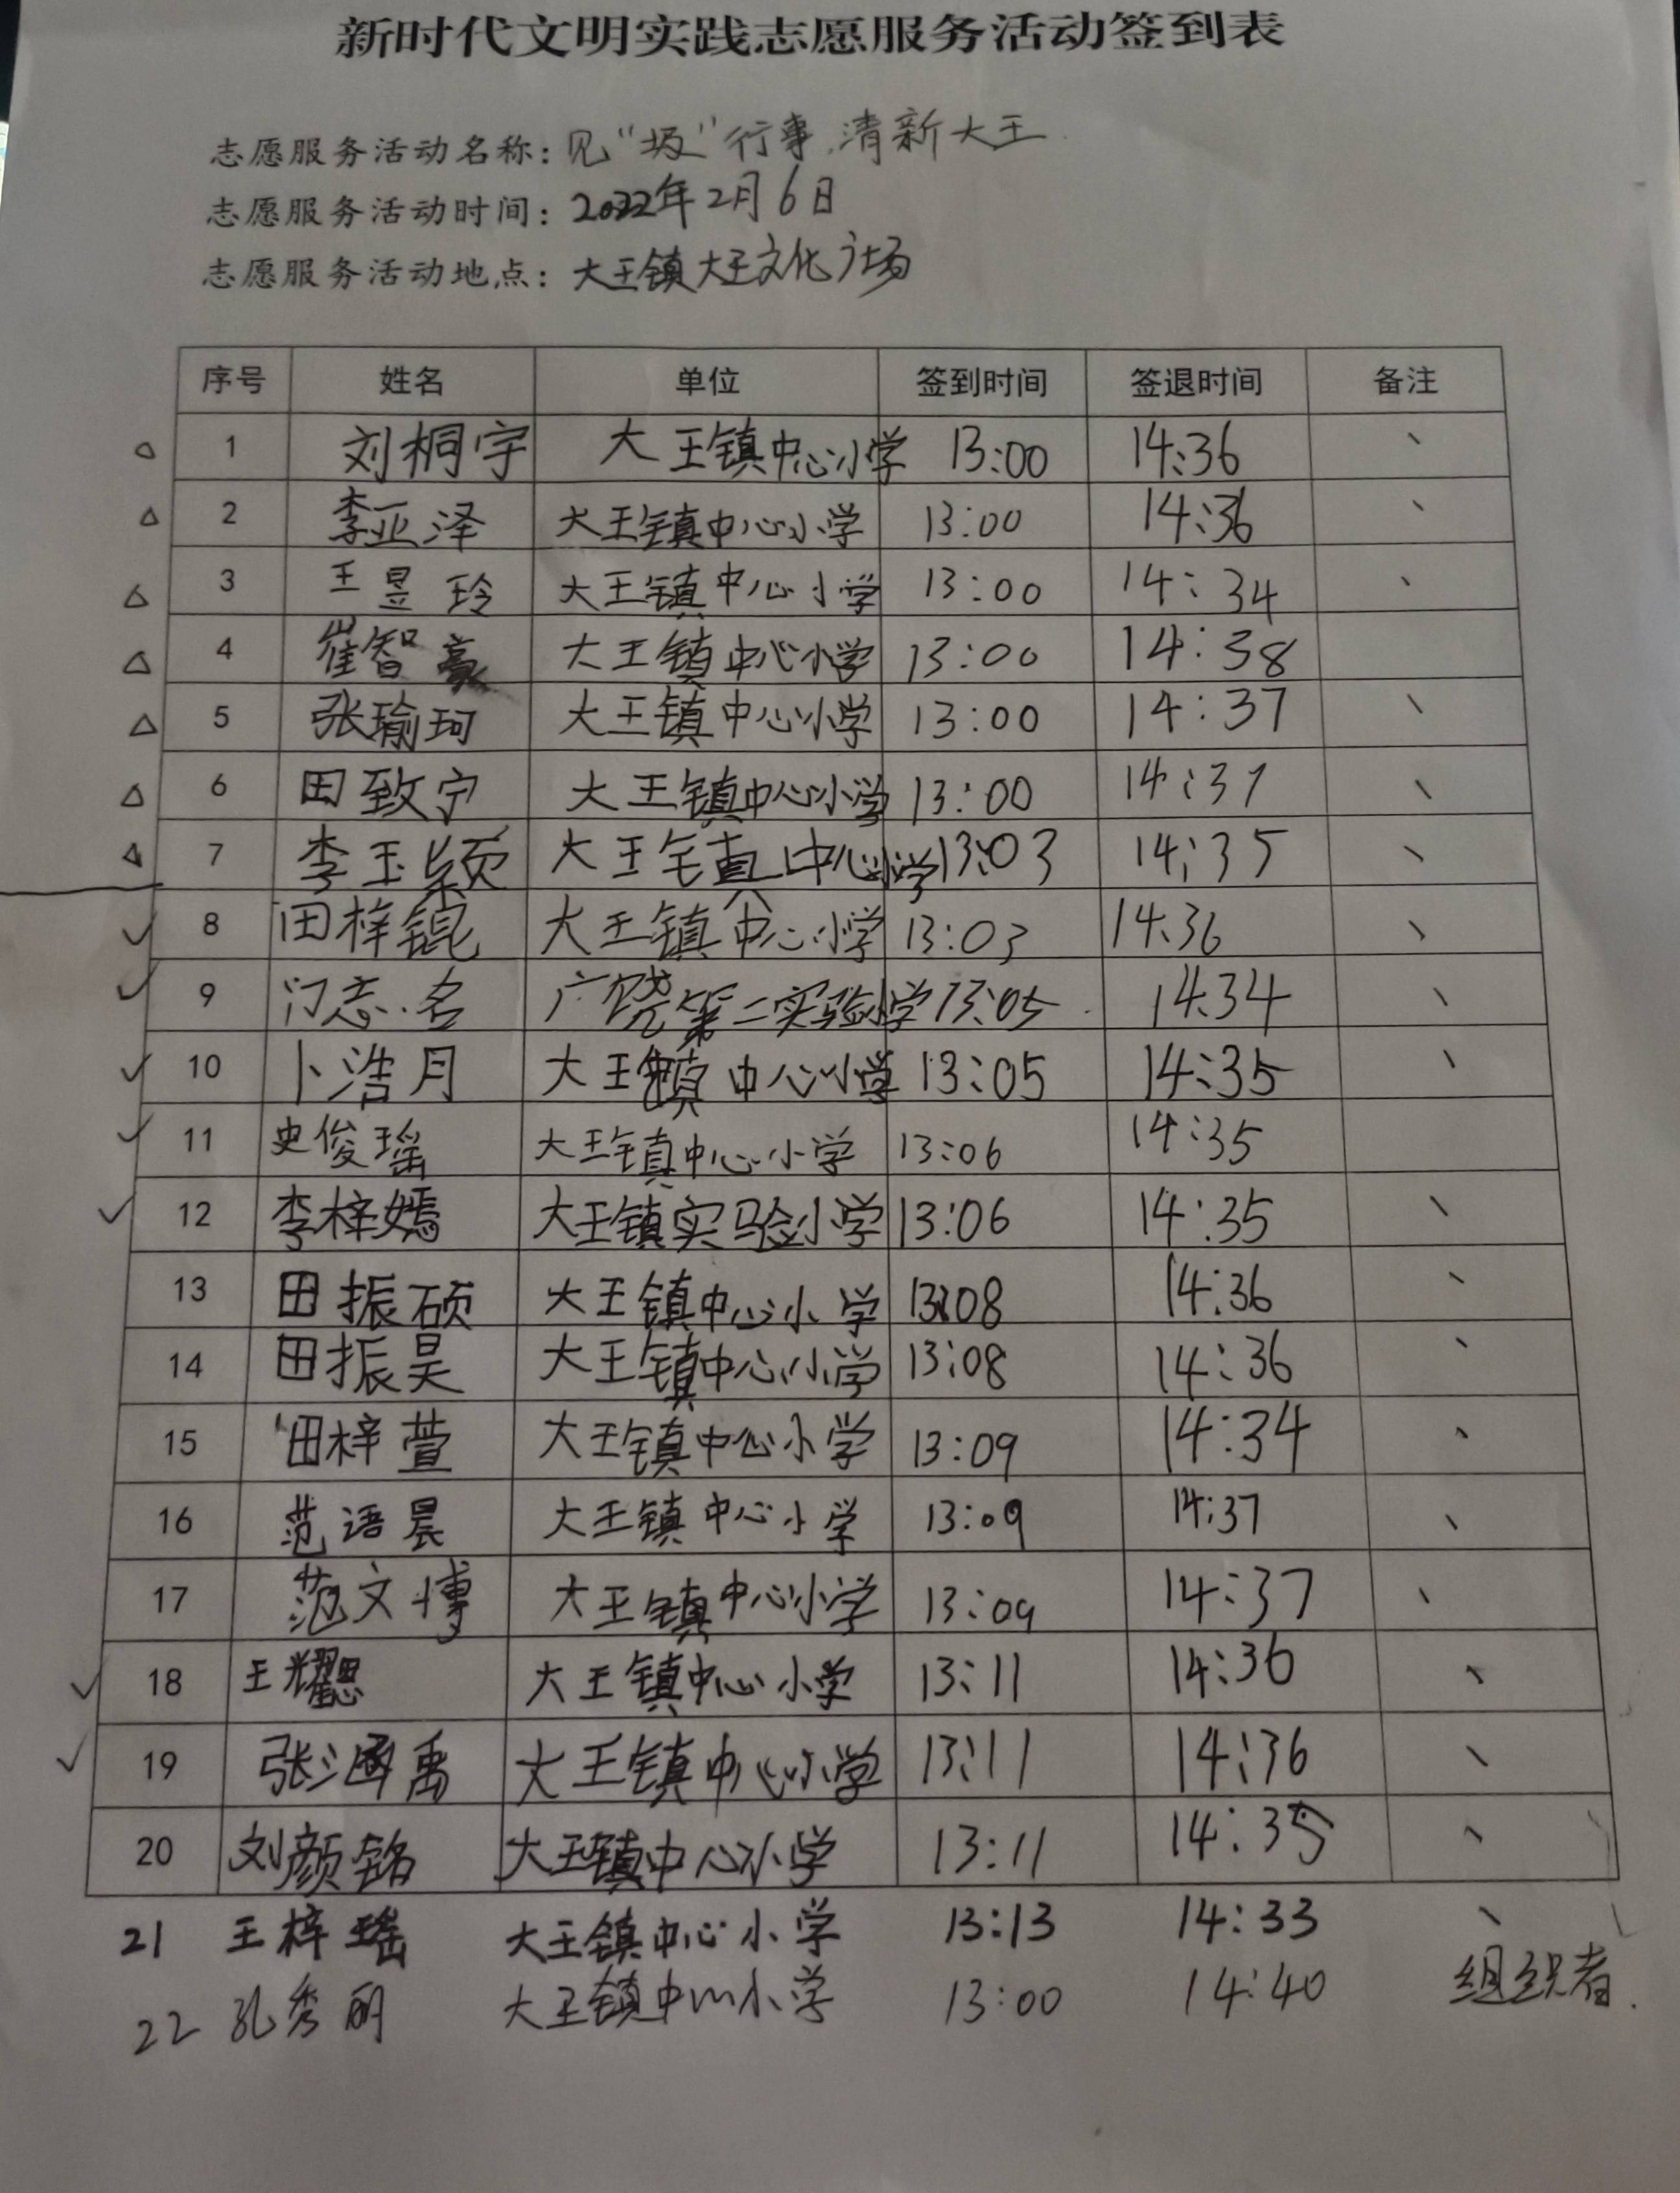 新时代文明实践志愿服务活动签到表
志愿服务活动名称：见“圾”行事，清新大王
志愿服务活动时间：2022年2月6日
志愿服务活动地点：大王镇大王文化广场
序号 姓名 单位 签到时间 签退时间 备注
1 刘桐宇 大王镇中心小学 13:00 14:36
2 李亚泽 大王镇中心小学 13:00 14:36
3 王昱玲 大王镇中心小学 13:00 14:34
4 崔智豪 大王镇中心小学 13:00 14:38
5 张瑜珂 大王镇中心小学 13:00 14:37
6 田致宁 大王镇中心小学 13:00 14:37
7 李玉颖 大王镇中心小学 13:03 14:35
8 田梓锟 大王镇中心小学 13:03 14:36
9 门志名 广饶第二实验小学 13:05 14:34
10 卜浩月 大王镇中心小学 13:05 14:35
11 史俊瑶 大王镇中心小学 13:06 14:35
12 李梓嫣 大王镇实验小学 13:06 14:35
13 田振硕 大王镇中心小学 13:08 14:36
14 田振昊 大王镇中心小学 13:08 14:36
15 田梓萱 大王镇中心小学 13:09 14:34
16 范语晨 大王镇中心小学 13:09 14:37
17 范文博 大王镇中心小学 13:09 14:37
18 王耀 大王镇中心小学 13:11 14:36
19 张涵禹 大王镇中心小学 13:11 14:36
20 刘颜铭 大王镇中心小学 13:11 14:35
21 王梓瑶 大王镇中心小学 13:13 14:33
22 孔秀丽 大王镇中心小学 13:00 14:40 组织者